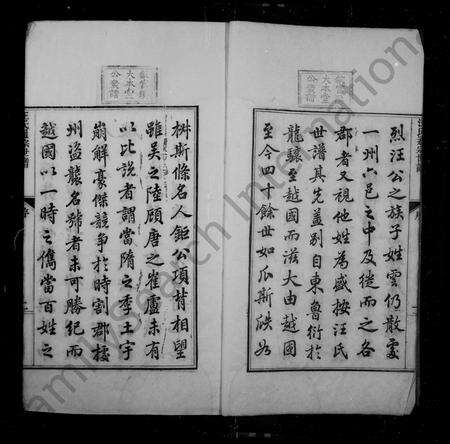 烈汪公之族子姓雲仍散處
一州六邑之中及徙而之各
郡者又視他姓為盛按汪氏
世譜其先蓋别自東魯衍於
龍驤至越國而滋大由越國
至今四十餘世如瓜斯瓞如
椒斯條名人鉅公項背相望
雖吳之陸顧唐之崔盧未有
以比說者謂當隋之季土宇
崩解豪傑競爭於時割郡據
州盜襲名號者未可勝紀而
越國以一時之儁當百姓之
FamilySearch International